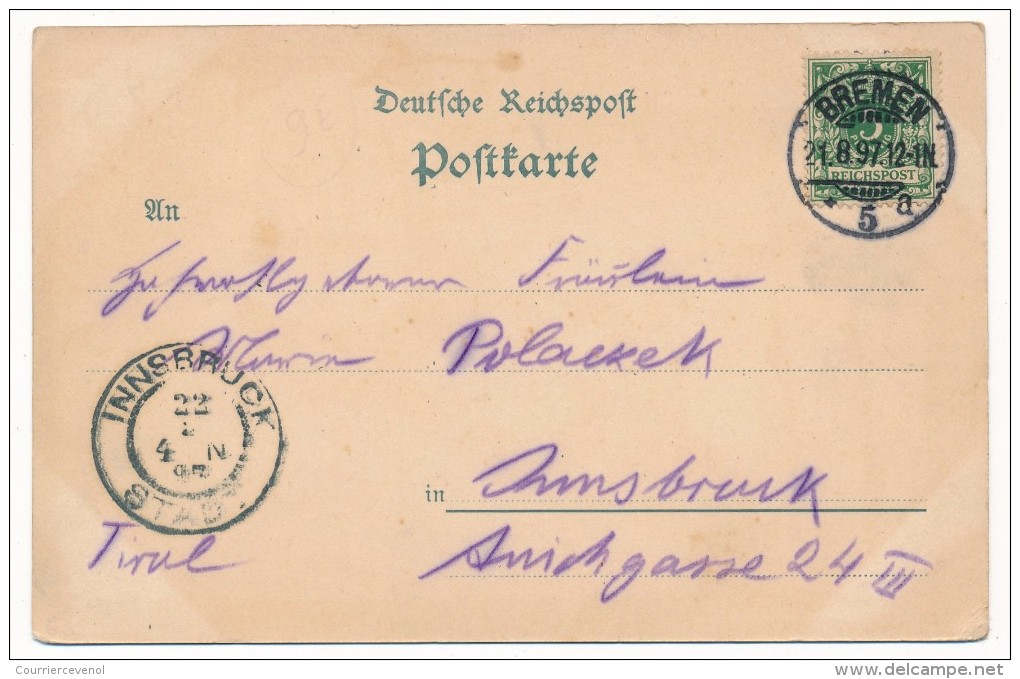 Deutsche Reichspost
Postkarte
An
BREMEN
5
REICHSPOST
21.8.97.12-1N.
* 5 a
Hochwohlgeboren Fräulein
Marie Polaczek
INNSBRUCK
22
4 N
STADT
in Innsbruck
Tirol
Anichgasse 24 III
Courriercevenol
delcampe.net